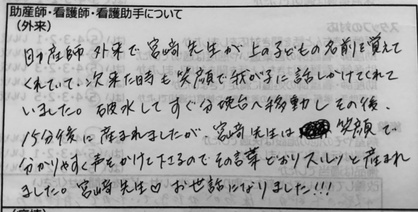 助産師・看護師・看護助手について
(外来)
助産師外来で宮崎先生が上の子どもの名前を覚えて
くれていて、次来た時も笑顔で我が子に話しかけてくれて
いました。破水してすぐ分娩台へ移動しその後、
15分後に産まれましたが、宮崎先生は 笑顔で、
分かりやすく声をかけて下さるのでその言葉どおりスルッと産まれ
ました。宮崎先生♡お世話になりました!!!